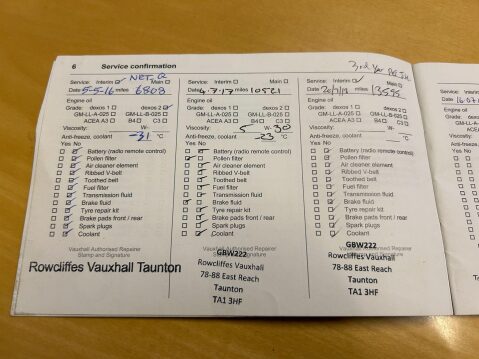 6 Service confirmation
3rd Year
Service: Interim Main
Date 5-5-16 miles 6808
Engine oil
Grade: dexos 1 dexos 2
GM-LL-A-025 GM-LL-B-025
ACEA A3 B4 C3
Viscosity: W-
Anti-freeze, coolant -31 °C
Yes No
Battery (radio remote control)
Pollen filter
Air cleaner element
Ribbed V-belt
Toothed belt
Fuel filter
Transmission fluid
Brake fluid
Tyre repair kit
Brake pads front / rear
Spark plugs
Coolant
Vauxhall Authorised Repairer
Stamp and Signature
Rowcliffes Vauxhall Taunton
Service: Interim Main
Date 4.7.17 miles 10521
Engine oil
Grade: dexos 1 dexos 2
GM-LL-A-025 GM-LL-B-025
ACEA A3 B4 C3
Viscosity: 5 W- 30
Anti-freeze, coolant -23 °C
Yes No
Battery (radio remote control)
Pollen filter
Air cleaner element
Ribbed V-belt
Toothed belt
Fuel filter
Transmission fluid
Brake fluid
Tyre repair kit
Brake pads front / rear
Spark plugs
Coolant
Vauxhall Authorised Repairer
GBW222
Rowcliffes Vauxhall
78-88 East Reach
Taunton
TA1 3HF
Service: Interim Main
Date miles 13555
Engine oil
Grade: dexos 1 dexos 2
GM-LL-A-025 GM-LL-B-025
ACEA A3 B4 C3
Viscosity: W-
Anti-freeze, coolant °C
Yes No
Battery (radio remote control)
Pollen filter
Air cleaner element
Ribbed V-belt
Toothed belt
Fuel filter
Transmission fluid
Brake fluid
Tyre repair kit
Brake pads front / rear
Spark plugs
Coolant
Vauxhall Authorised Repairer
GBW222
Rowcliffes Vauxhall
78-88 East Reach
Taunton
TA1 3HF
Service: Inte
Date
Engine oil
Grade:
Viscosity:
Anti-freeze, coo
Yes No